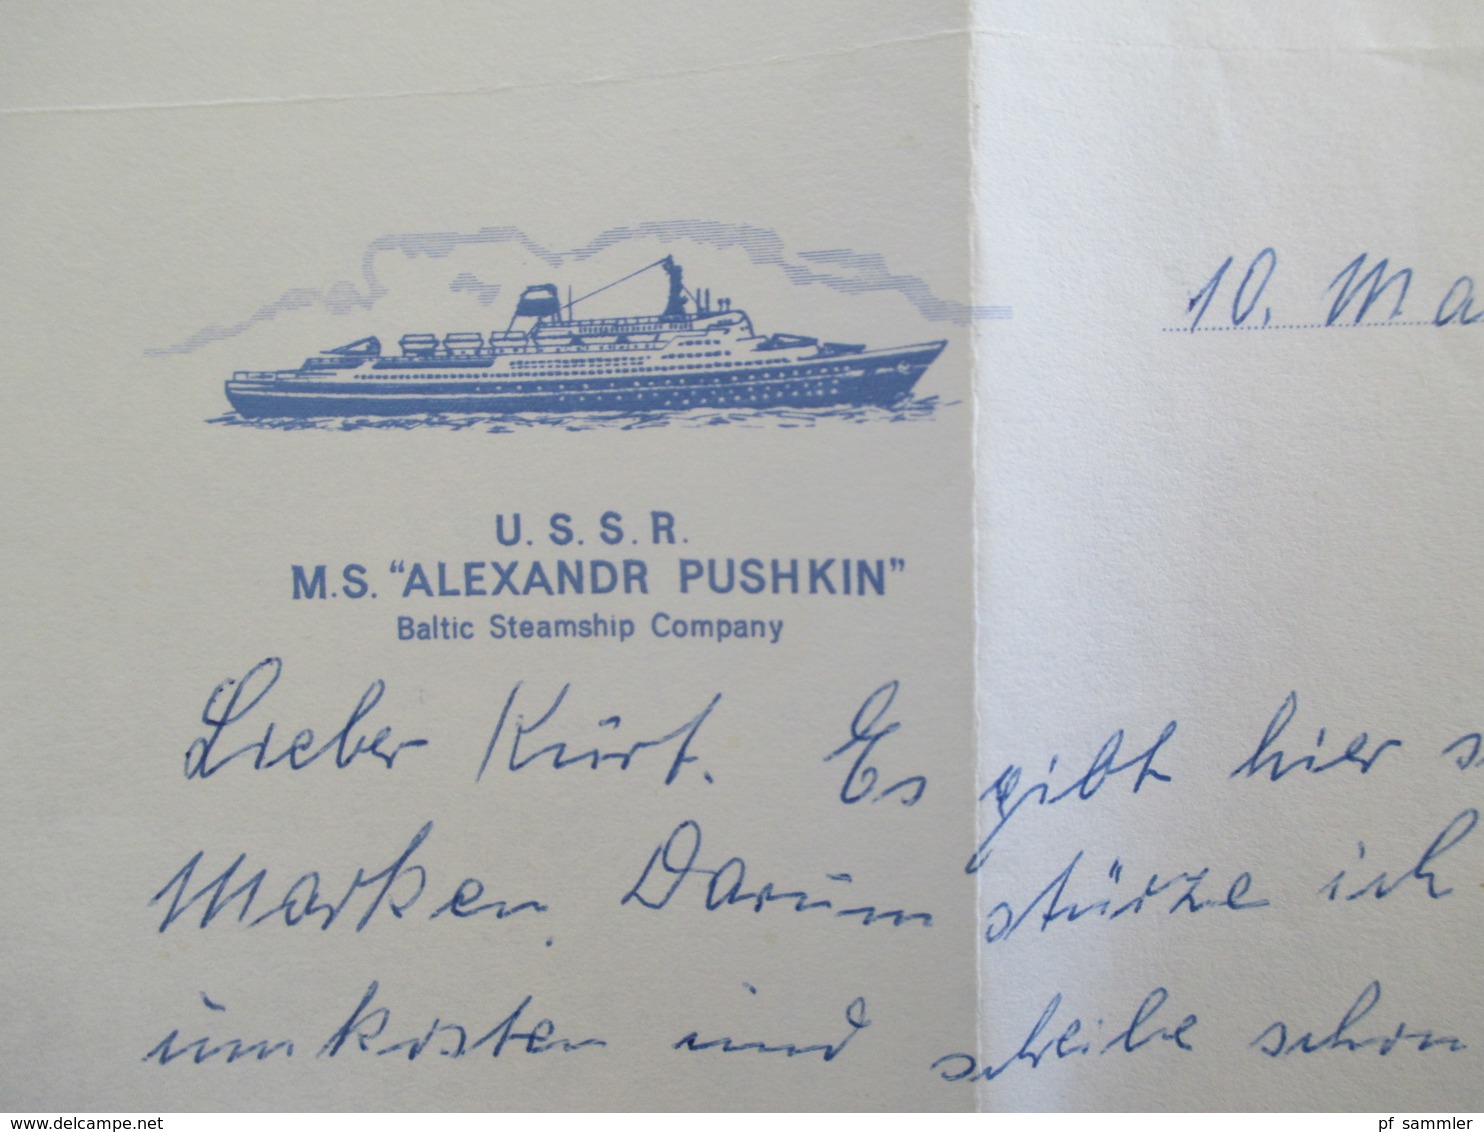 10. Ma
U.S.S.R.
M.S. “ALEXANDR PUSHKIN”
Baltic Steamship Company
Lieber Kurt. Es gibt hier s
Marken. Darum stürze ich
umkosten und schreibe schon
delcampe.net
pf_sammler